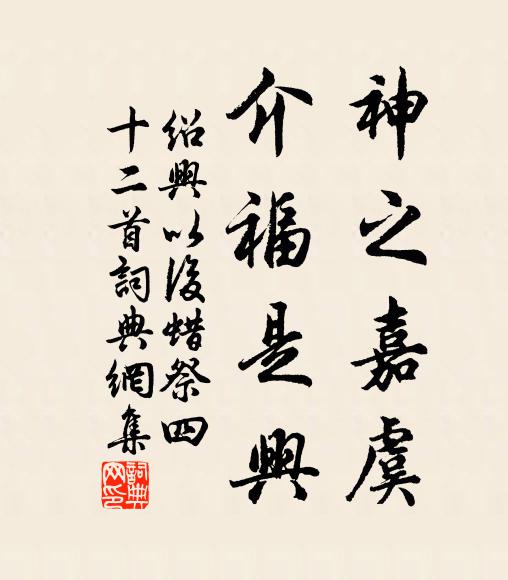 神之嘉虞
介福是興
紹興以後蜡祭四
十二首詞典網集
詞典
网印